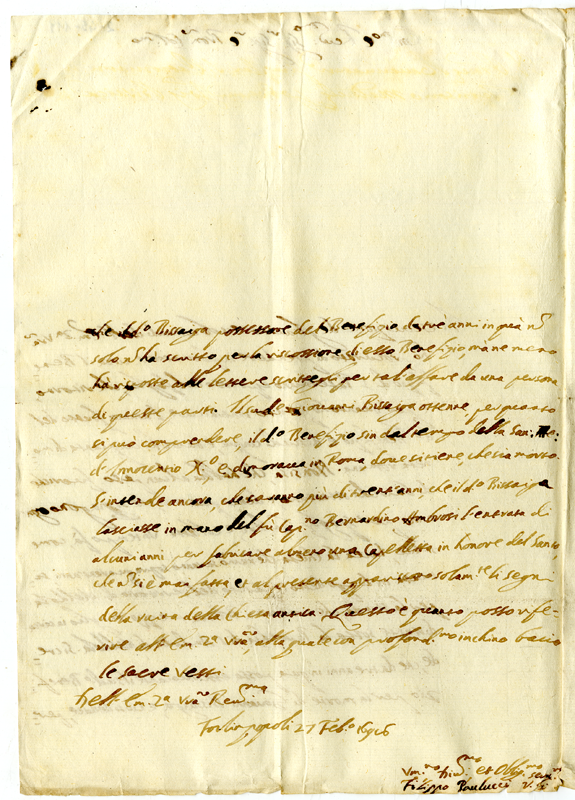 che il d.º Bissaiga possessore del Benefizio da tre anni in quà nõ
solo nõ hà scritto per la riscossione di esso Benefizio, mà ne meno
hà risposte alle lettere scrittegli per tal'affare da una persona
di queste parti. Il sud.º Giovanni Bissaiga ottenne, per quanto
si può comprendere, il d.º Benefizio sin dal tempo della San: Me:
d'Innocentio X.º e dimorava in Roma, dove si tiene, che sia morto.
S'intende ancora, che saranno più di trent'anni, che il d.º Bissaiga
lasciasse in mano del fù Cap.no Bernardino Ambrosi l'entrata di
alcuni anni per fabricare almeno una Capelletta in honore del Santo,
che nõ si è mai fatta, et al presente appariscono solam.te li segni
della ruina della Chiesa antica. Questo è quanto posso rife-
rire all'Em.za Vrã alla quale con profond.mo inchino bacio
le sacre vesti
Dell'Em.za Vrã Rev.ma
Forlimpopoli 27 Feb.º
Vm.mo et Obblig.mo
Filippo Paulucci